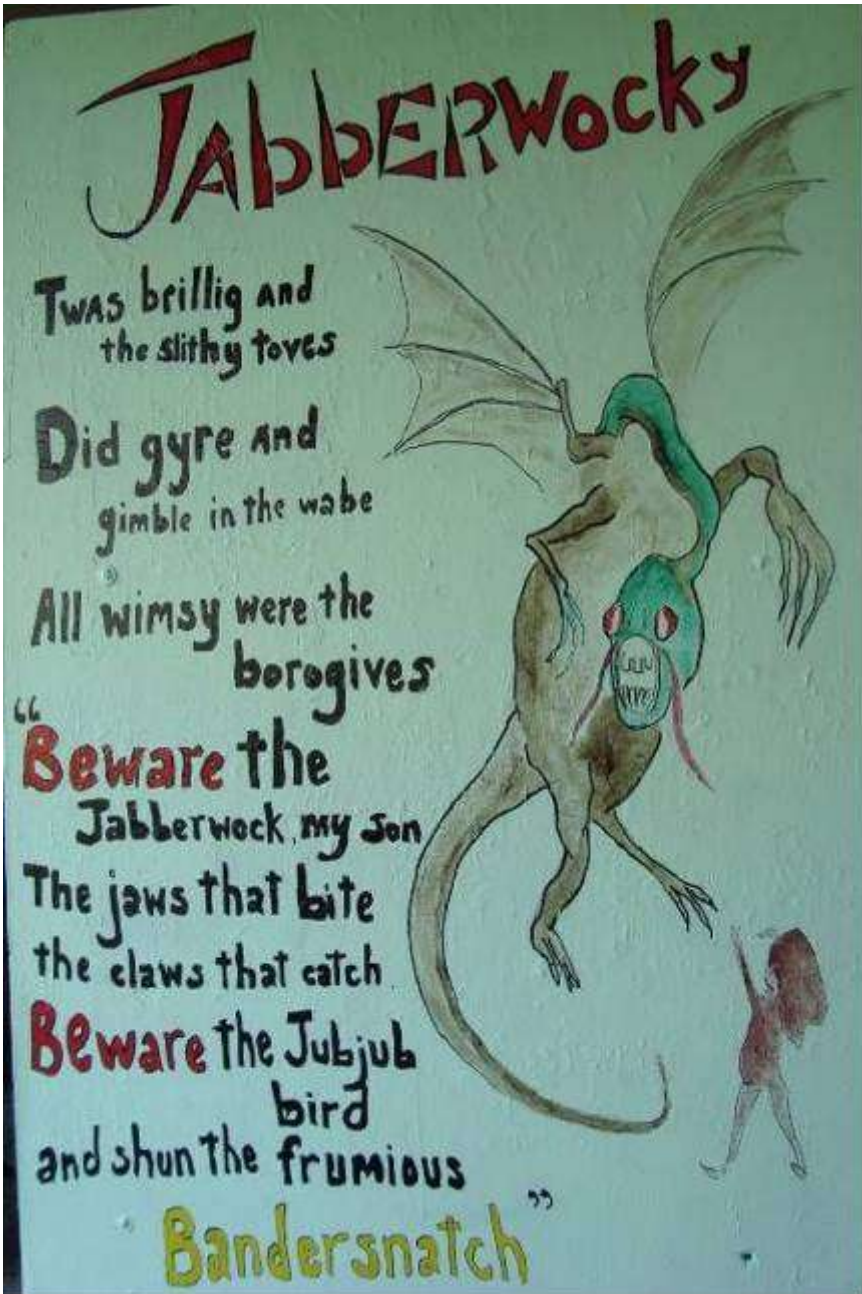 JAbbERWocky
Twas brillig and
the slithy toves
Did gyre and
gimble in the wabe
All wimsy were the
borogives
"Beware the
Jabberwock, my son
The jaws that bite
the claws that catch
Beware the Jubjub
bird
and shun the frumious
Bandersnatch"